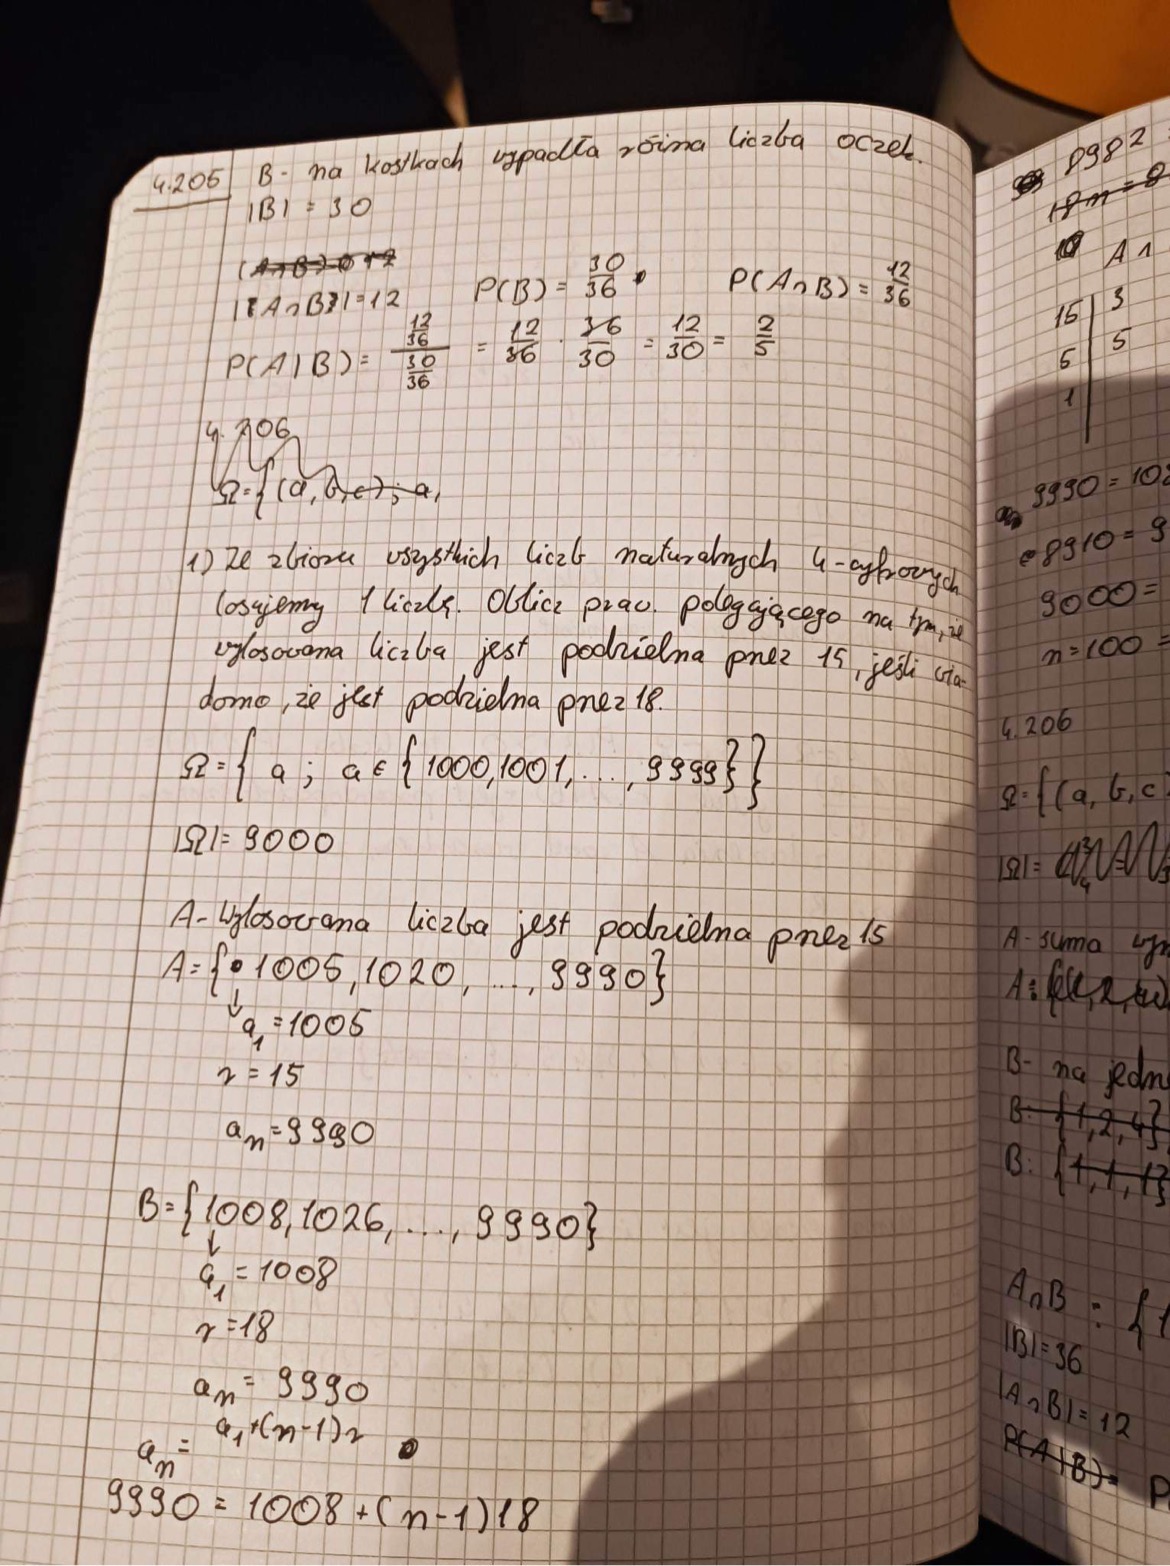 4.205 B- na kostkach wypadła różna liczba oczek.
|B| = 30
|A∩B|=12 P(B)= 30/36 P(A∩B)= 12/36
P(A|B)= (12/36)/(30/36) = 12/36 · 36/30 = 12/30 = 2/5
4.206
Ω={(a,b,c); a,
1) Ze zbioru wszystkich liczb naturalnych 4-cyfrowych
losujemy 1 liczbę. Oblicz praw. polegającego na tym, że
wylosowana liczba jest podzielna przez 15, jeśli wia-
domo, że jest podzielna przez 18.
Ω={ a; a∈{1000,1001,...,9999}}
|Ω|=9000
A- Wylosowana liczba jest podzielna przez 15
A={1005,1020,...,9990}
↓
a₁=1005
r=15
aₙ=9990
B={1008,1026,...,9990}
↓
a₁=1008
r=18
aₙ=9990
aₙ= a₁+(n-1)r
9990 = 1008+(n-1)18
8982
18n = 9
A∩
15 | 3
5 | 5
1 |
9990=100
8910=9
9000=
n=100
4.206
Ω={(a,b,c)
|Ω|=
A- suma
B- na jedn
B= {1,2,4}
B: {1,1,1}
A∩B = {1
|B|=36
|A∩B|=12
P(A|B)= P